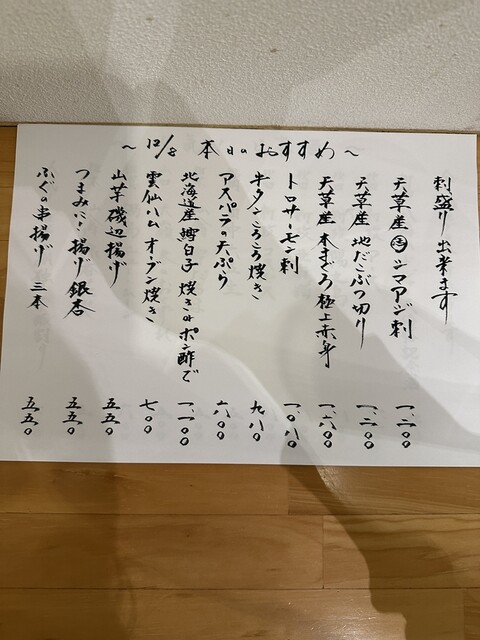 ～12/8 本日のおすすめ～
刺盛り出来ます
天草産 活 シマアジ刺 一、二〇〇
天草産 地だこぶつ切り 一、二〇〇
天草産 本まぐろ 極上赤身 一、六〇〇
トロサーモン刺 一、〇八〇
牛タンころころ焼き 九八〇
アスパラの天ぷら 六八〇
北海道産 鱈白子 焼きorポン酢で 一、一〇〇
雲仙ハム オーブン焼き 七〇〇
山芋磯辺揚げ 五五〇
つまみに! 揚げ銀杏 五五〇
ふぐの串揚げ 三本 五五〇